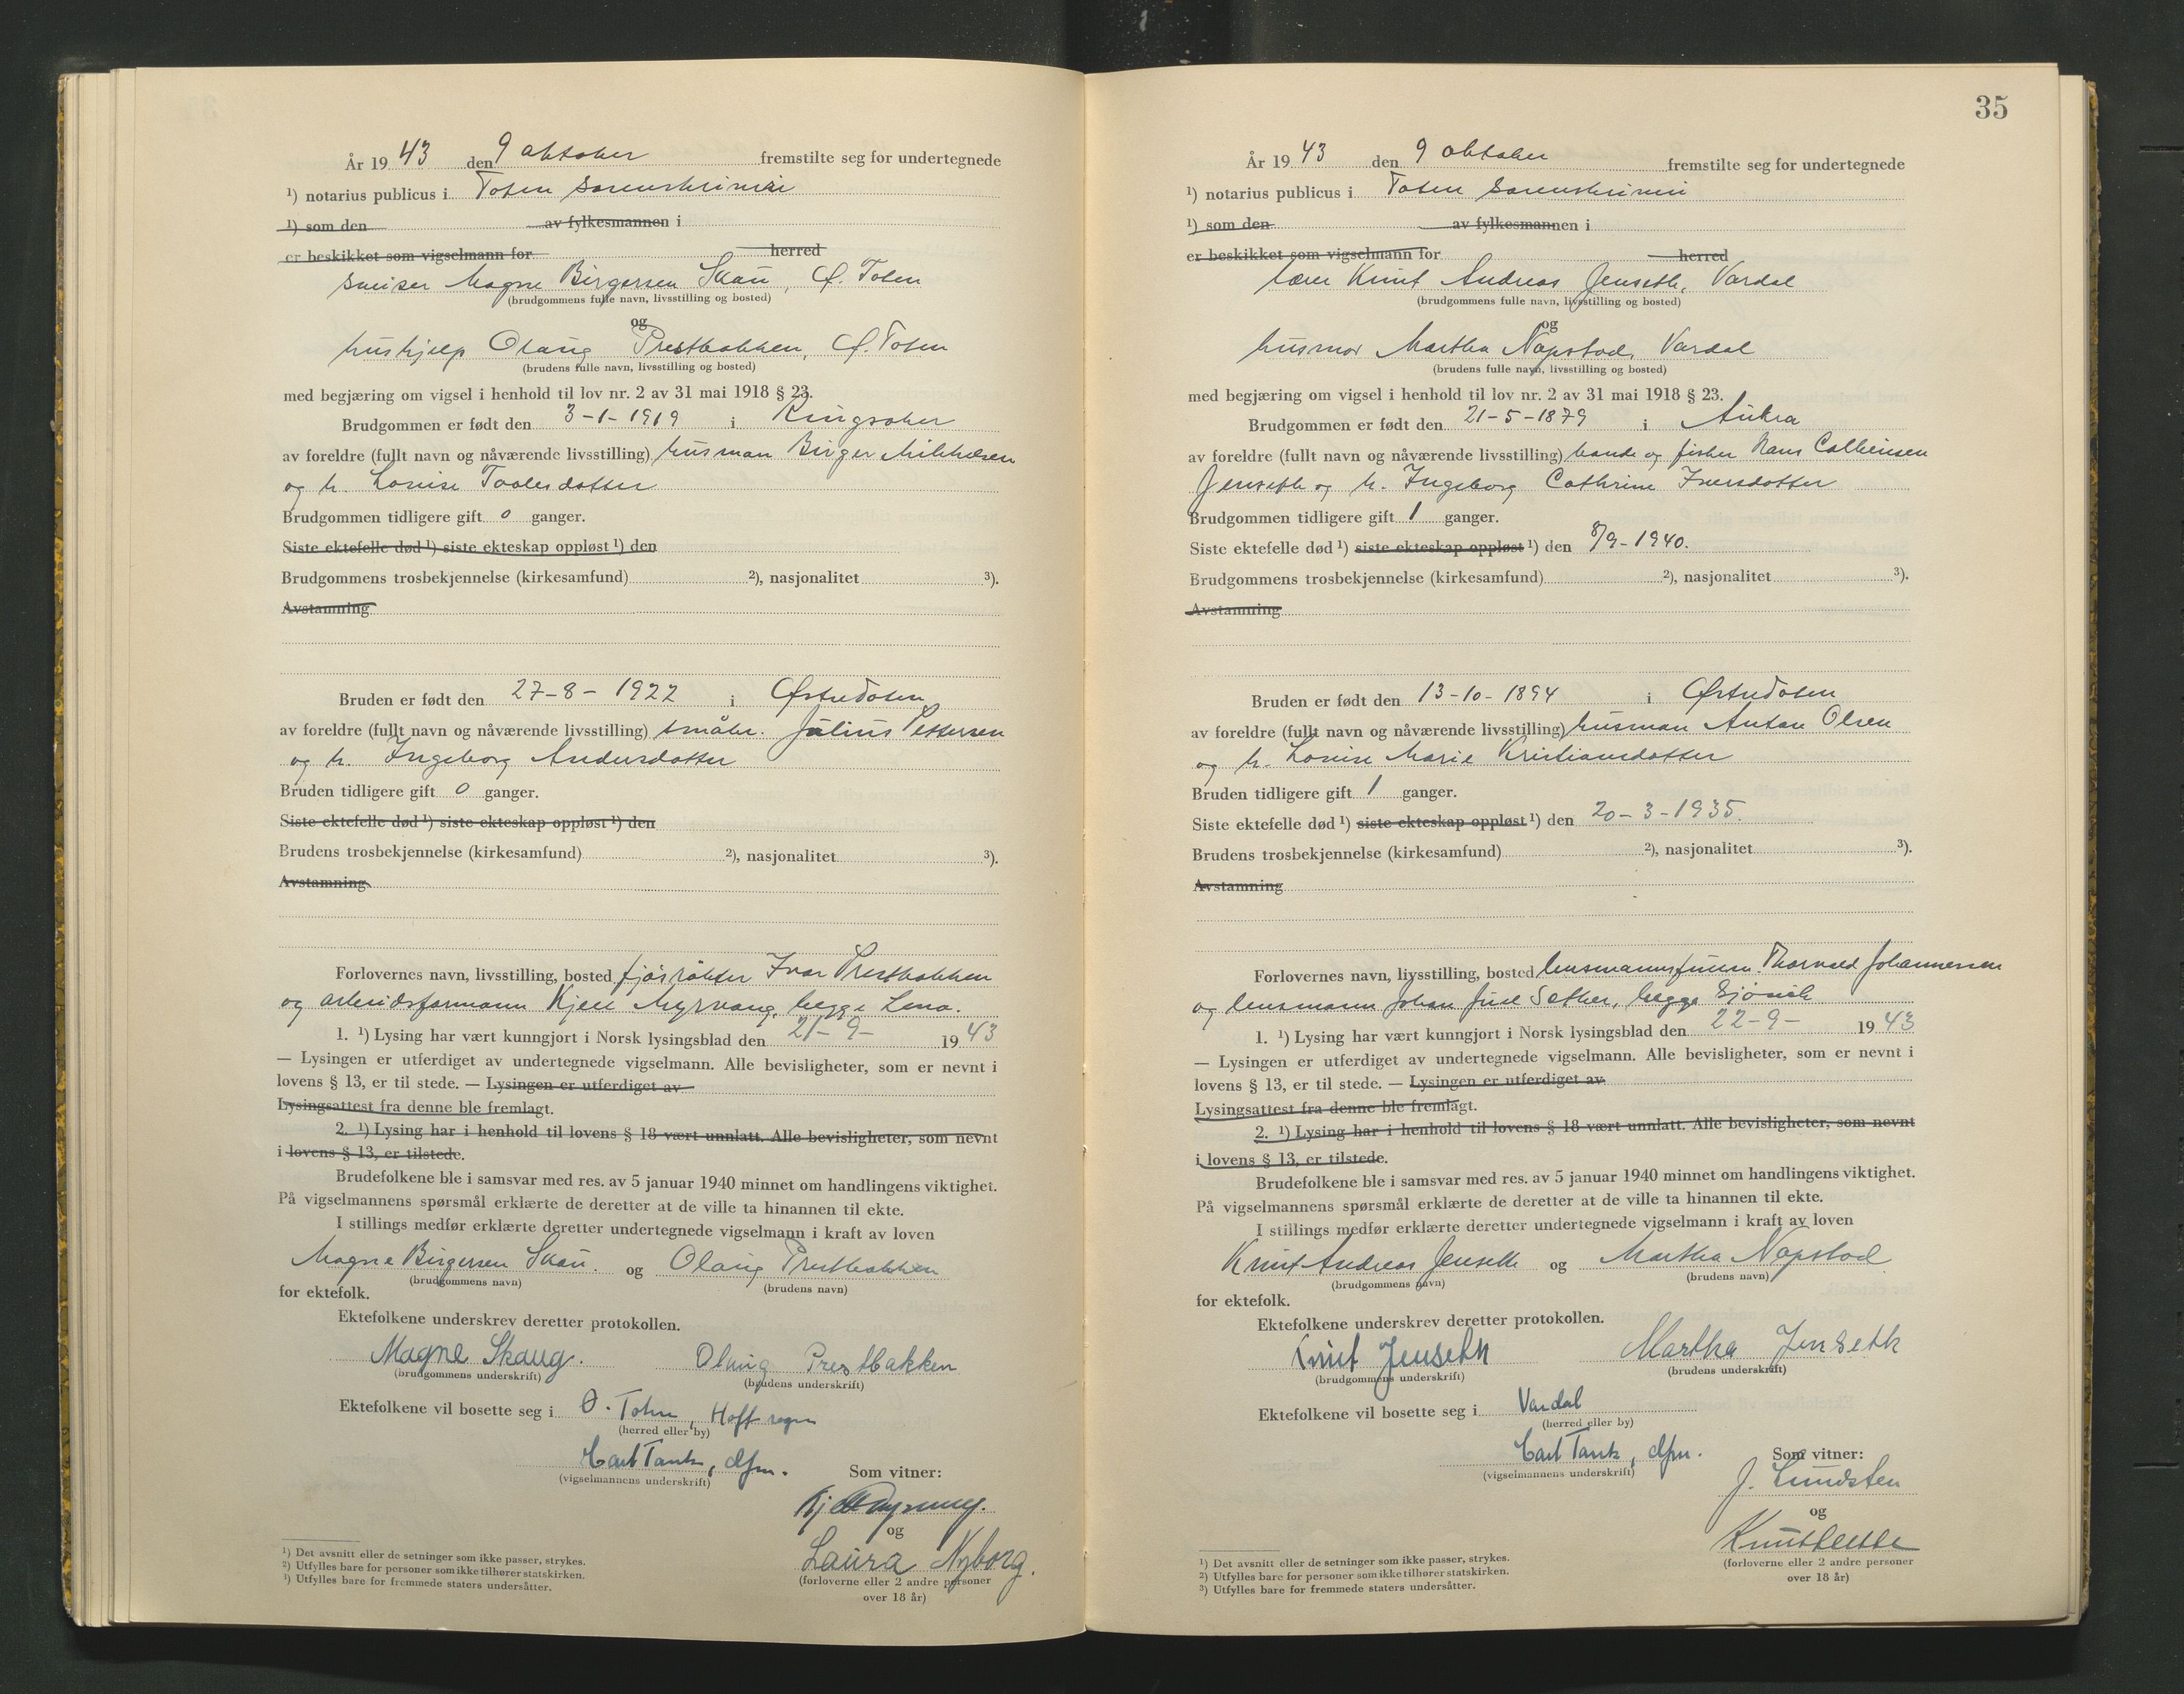 År 1943 den 9 oktober fremstilte seg for undertegnede
1) notarius publicus i Toten sorenskriveri
1) som den av fylkesmannen i
er beskikket som vigselmann for herred
sveiser Magne Birgersen Skau, Ø. Toten
(brudgommens fulle navn, livsstilling og bosted)
og
hushjelp Olaug Prestbakken, Ø. Toten
(brudens fulle navn, livsstilling og bosted)
med begjæring om vigsel i henhold til lov nr. 2 av 31 mai 1918 § 23.
Brudgommen er født den 3-1-1919 i Ringsaker
av foreldre (fullt navn og nåværende livsstilling) husman Birger Mikkelsen
og h. Lovise
Brudgommen tidligere gift 0 ganger.
Siste ektefelle død 1) siste ekteskap oppløst 1) den
Brudgommens trosbekjennelse (kirkesamfund) 2), nasjonalitet 3).
Avstamning
Bruden er født den 27-8-1922 i Østre Toten
av foreldre (fullt navn og nåværende livsstilling) småbr. Julius Pettersen
og h. Ingeborg Andersdatter
Bruden tidligere gift 0 ganger.
Siste ektefelle død 1) siste ekteskap oppløst 1) den
Brudens trosbekjennelse (kirkesamfund) 2), nasjonalitet 3).
Avstamning
Forlovernes navn, livsstilling, bosted fjøsrøkter Ivar Prestbakken
og arbeidsformann Kjell Myrvang, begge Lena.
1. 1) Lysing har vært kunngjort i Norsk lysingsblad den 21-9- 1943
— Lysingen er utferdiget av undertegnede vigselmann. Alle bevisligheter, som er nevnt i
lovens § 13, er til stede. — Lysingen er utferdiget av
Lysingsattest fra denne ble fremlagt.
2. 1) Lysing har i henhold til lovens § 18 vært unnlatt. Alle bevisligheter, som nevnt
i lovens § 13, er tilstede.
Brudefolkene ble i samsvar med res. av 5 januar 1940 minnet om handlingens viktighet.
På vigselmannens spørsmål erklærte de deretter at de ville ta hinannen til ekte.
I stillings medfør erklærte deretter undertegnede vigselmann i kraft av loven
Magne Birgersen Skau. og Olaug Prestbakken
(brudgommens navn) (brudens navn)
for ektefolk.
Ektefolkene underskrev deretter protokollen.
Magne Skaug. Olaug Prestbakken
(brudgommens underskrift) (brudens underskrift)
Ektefolkene vil bosette seg i Ø. Toten, Hoff sogn
(herred eller by)
Carl Tank, dfm.
(vigselmannens underskrift)
Som vitner:
Kjell Myrvang.
og
Laura Nyborg.
(forloverne eller 2 andre personer
over 18 år)
1) Det avsnitt eller de setninger som ikke passer, strykes.
2) Utfylles bare for personer som ikke tilhører statskirken.
1) Utfylles bare for fremmede staters undersåtter.
35
År 1943 den 9 oktober fremstilte seg for undertegnede
1) notarius publicus i Toten sorenskriveri
1) som den av fylkesmannen i
er beskikket som vigselmann for herred
lærer Knut Andreas Jenseth, Vardal
(brudgommens fulle navn, livsstilling og bosted)
og
husmor Martha Napstad, Vardal
(brudens fulle navn, livsstilling og bosted)
med begjæring om vigsel i henhold til lov nr. 2 av 31 mai 1918 § 23.
Brudgommen er født den 21-5-1879 i Aukra
av foreldre (fullt navn og nåværende livsstilling) bonde og fisker Hans
Jenseth og h. Ingeborg Cathrine Iversdatter
Brudgommen tidligere gift 1 ganger.
Siste ektefelle død 1) siste ekteskap oppløst 1) den 8/9-1940.
Brudgommens trosbekjennelse (kirkesamfund) 2), nasjonalitet 3).
Avstamning
Bruden er født den 13-10-1894 i Østre Toten
av foreldre (fullt navn og nåværende livsstilling) husman Anton Olsen
og h. Lovise Marie Kristiansdatter
Bruden tidligere gift 1 ganger.
Siste ektefelle død 1) siste ekteskap oppløst 1) den 20-3-1935.
Brudens trosbekjennelse (kirkesamfund) 2), nasjonalitet 3).
Avstamning
Forlovernes navn, livsstilling, bosted Thorvald Johannessen
og lensmann Johan Juel Sether, begge Gjøvik
1. 1) Lysing har vært kunngjort i Norsk lysingsblad den 22-9- 1943
— Lysingen er utferdiget av undertegnede vigselmann. Alle bevisligheter, som er nevnt i
lovens § 13, er til stede. — Lysingen er utferdiget av
Lysingsattest fra denne ble fremlagt.
2. 1) Lysing har i henhold til lovens § 18 vært unnlatt. Alle bevisligheter, som nevnt
i lovens § 13, er tilstede.
Brudefolkene ble i samsvar med res. av 5 januar 1940 minnet om handlingens viktighet.
På vigselmannens spørsmål erklærte de deretter at de ville ta hinannen til ekte.
I stillings medfør erklærte deretter undertegnede vigselmann i kraft av loven
Knut Andreas Jenseth og Martha Napstad
(brudgommens navn) (brudens navn)
for ektefolk.
Ektefolkene underskrev deretter protokollen.
Knut Jenseth Martha Jenseth
(brudgommens underskrift) (brudens underskrift)
Ektefolkene vil bosette seg i Vardal
(herred eller by)
Carl Tank, dfm.
(vigselmannens underskrift)
Som vitner:
J. Lundsten
og
(forloverne eller 2 andre personer
over 18 år)
1) Det avsnitt eller de setninger som ikke passer, strykes.
2) Utfylles bare for personer som ikke tilhører statskirken.
3) Utfylles bare for fremmede staters undersåtter.